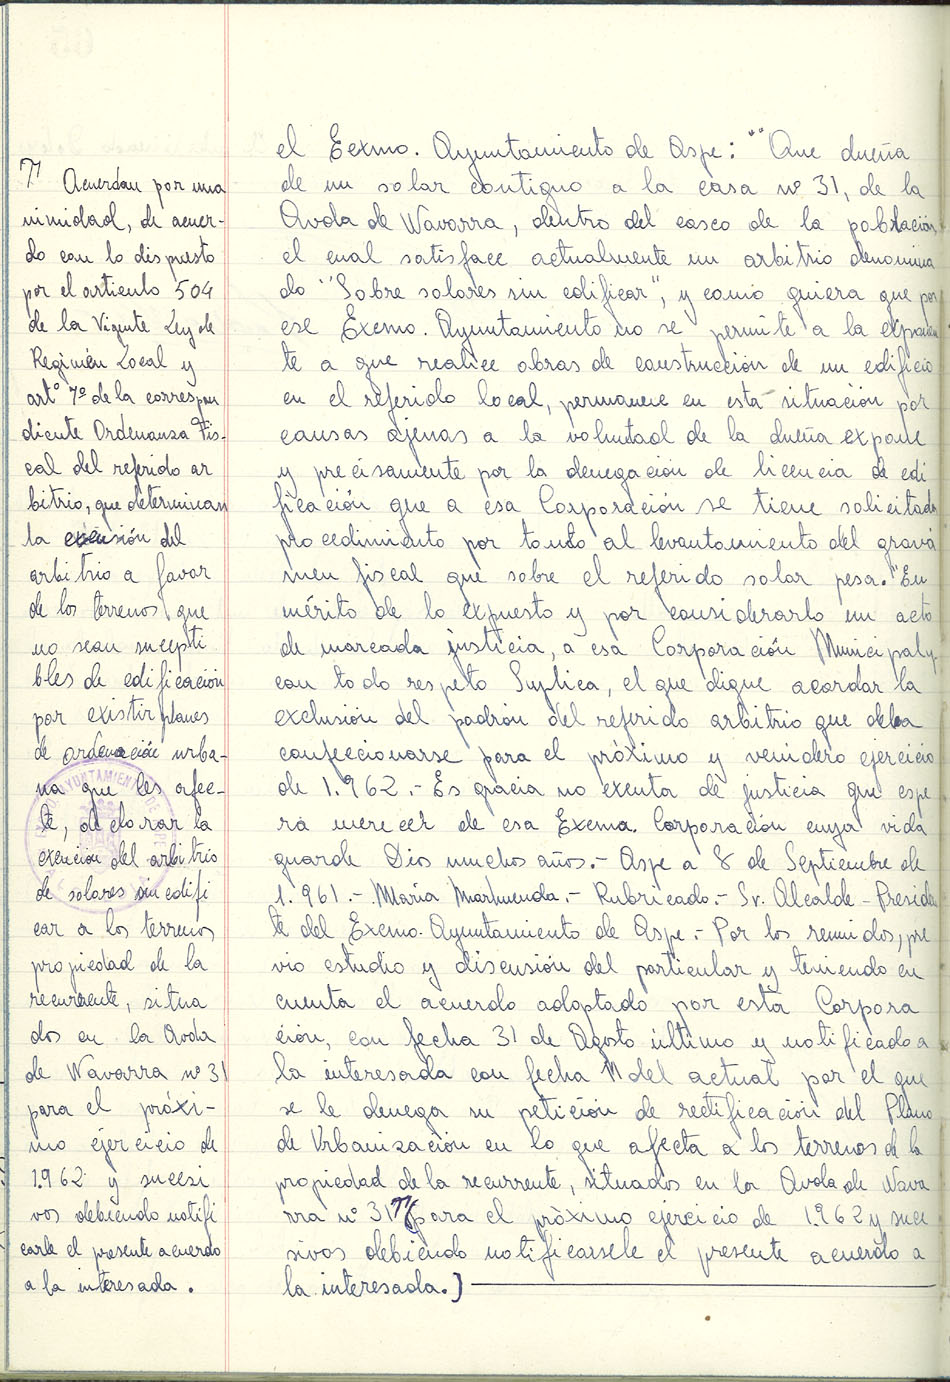 el Eexmo. Ayuntamiento de Aspe: "Que dueña
de un solar contiguo a la casa nº 31, de la
Avda de Navarra, dentro del casco de la población,
el cual satisface actualmente un arbitrio denomina
do "Sobre solares sin edificar", y como quiera que por
ese Exemo. Ayuntamiento no se permite a la
te a que realice obras de construcción de un edificio
en el referido local, permanece en esta situación por
causas ajenas a la voluntad de la dueña expone
y precisamente por la denegación de licencia de edi
ficación que a esa Corporación se tiene solicitada
procedimiento por tanto al levantamiento del gravá
men fiscal que sobre el referido solar pesa."En
mérito de lo expuesto y por considerarlo un acto
de marcada justicia, a esa Corporación Municipal y
con todo respeto Suplica, el que digne acordar la
exclusión del padrón del referido arbitrio que deba
confeccionarse para el próximo y venidero ejercicio
de 1.962.- Es gracia no exenta de justicia que espe
ra merecer de esa Exema. Corporación cuya vida
guarde Dios muchos años.- Aspe a 8 de Septiembre de
1.961.- María Marhuenda.- Rubricado.- Sr. Alcalde-Presiden
te del Exemo. Ayuntamiento de Aspe.- Por los reunidos, pre
vio estudio y discusión del particular y teniendo en
cuenta el acuerdo adoptado por esta Corpora
ción, con fecha 31 de Agosto último y notificado a
la interesada con fecha 11 del actual por el que
se le denega su petición de rectificación del Plano
de Urbanización en lo que afecta a los terrenos de la
propiedad de la recurrente, situados en la Avda de Nava
rra nº 31 7/(para el próximo ejercicio de 1.962 y suce
sivos debiendo notificarsele el presente acuerdo a
la interesada.)
7/ Acuerdan por una
nimidad, de acuer-
do con lo dispuesto
por el articulo 504
de la Vigente Ley de
Regimén Local y
artº 7º de la correspon
diente Ordenanza Fis-
cal del referido ar
bitrio, que determinan
la exención del
arbitrio a favor
de los terrenos que
no sean suscepti
bles de edificación
por existir planes
de ordenación urba-
na que les afec-
te, declarar la
exención del arbitrio
de solares sin edifi
car a los terrenos
propiedad de la
recurrente, situa
dos en la Avda
de Navarra nº 31
para el próxi-
mo ejercicio de
1.962 y sucesi
vos debiendo notifi
carle el presente acuerdo
a la interesada.
AYUNTAMIENTO DE